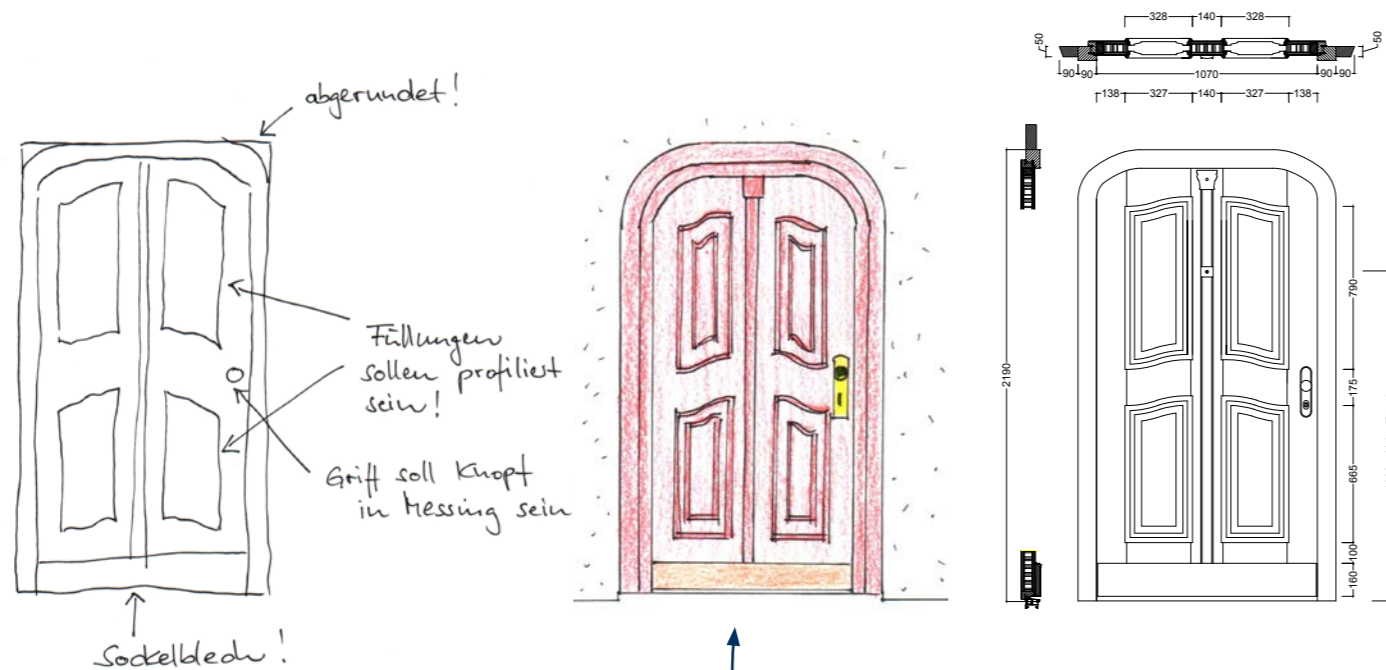 abgerundet!
Füllungen
sollen profiliert
sein!
Griff soll Knopf
in Messing sein
Sockelblech!
328
140
328
50
50
90
90
1070
90
90
138
327
140
327
138
2190
790
175
665
100
160